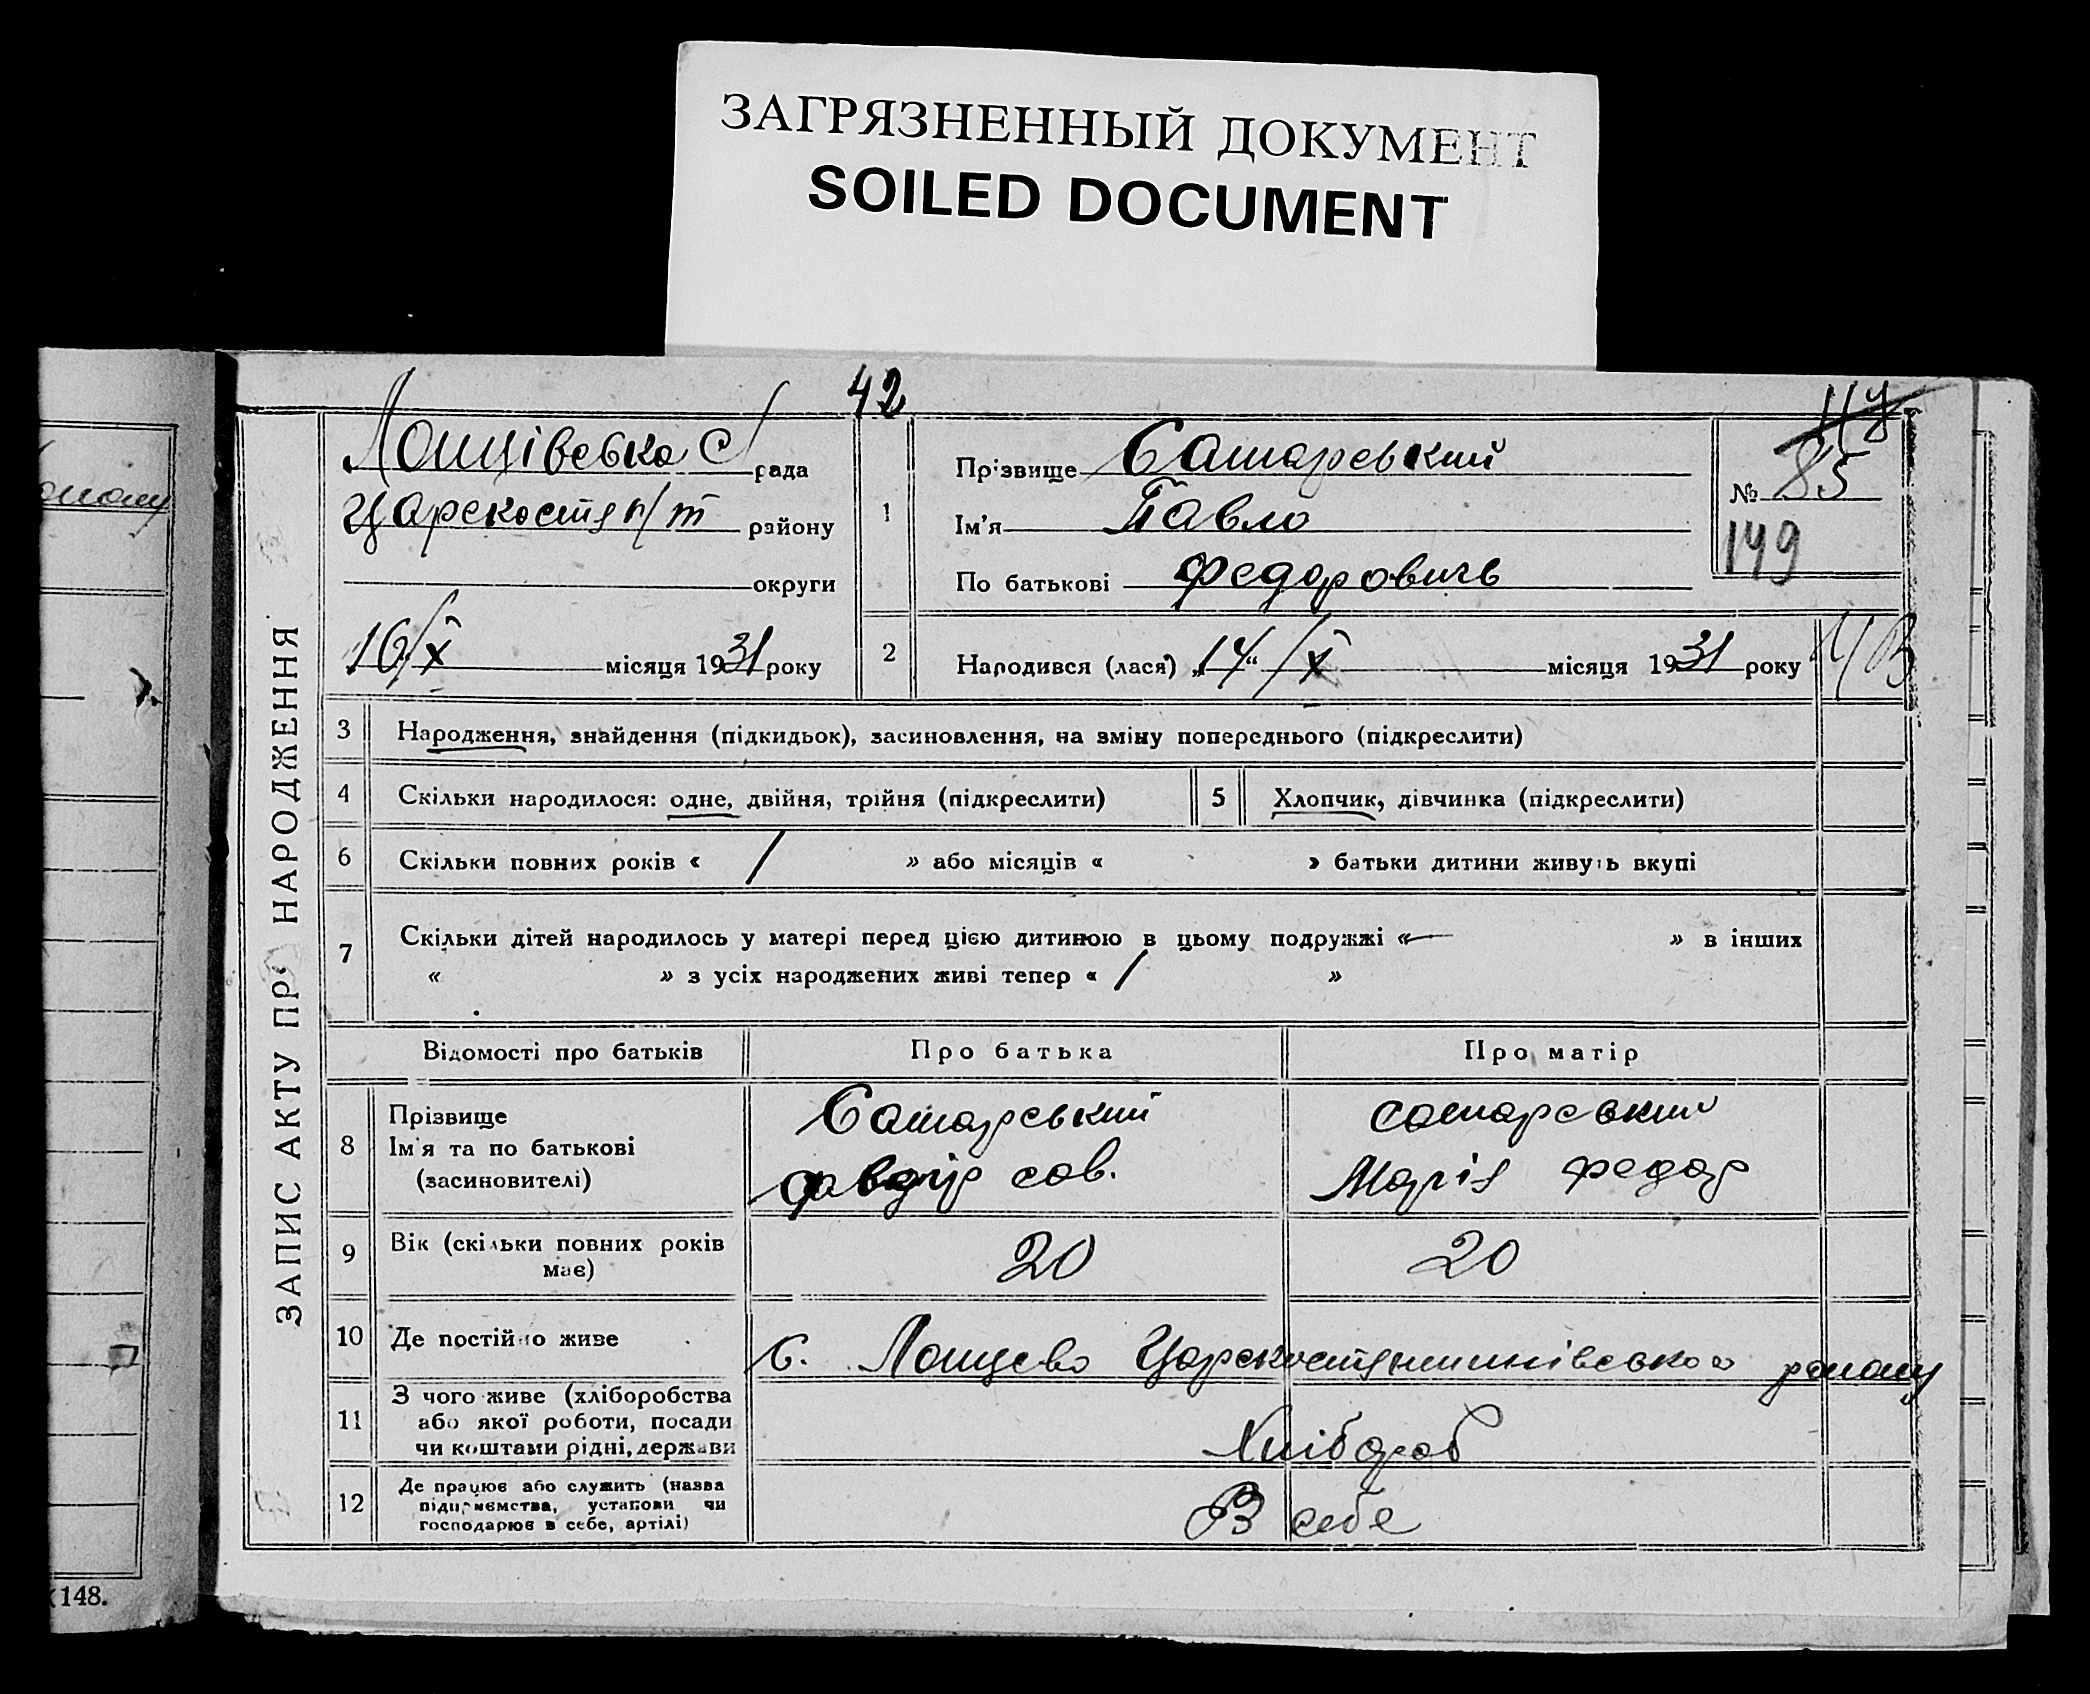 ЗАГРЯЗНЕННЫЙ ДОКУМЕНТ
SOILED DOCUMENT
42
ЗАПИС АКТУ ПРО НАРОДЖЕННЯ
Лощівська С рада
району
округи
16/X місяця 1931 року
1
Прізвище Сотарський
Ім’я Павло
По батькові Федоровичь
№ 85
149
2
Народився (лася) „14“ /X місяця 1931 року
3 Народження, знайдення (підкидьок), засиновлення, на зміну попереднього (підкреслити)
4 Скільки народилося: одне, двійня, трійня (підкреслити) 5 Хлопчик, дівчинка (підкреслити)
6 Скільки повних років « / » або місяців « » батьки дитини живуть вкупі
7 Скільки дітей народилось у матері перед цією дитиною в цьому подружжі «— » в інших
« » з усіх народжених живі тепер « / »
Відомості про батьків Про батька Про матір
8 Прізвище
Ім’я та по батькові
(засиновителі)
Сотарський
сав.
Сотарський
Марія Федор
9 Вік (скільки повних років має) 20 20
10 Де постійно живе с. Лощево району
11 З чого живе (хліборобства
або якої роботи, посади
чи коштами рідні, держави
Хлібороб
12 Де працює або служить (назва
підприємства, установи чи
господарює в себе, артілі)
В себе
148.